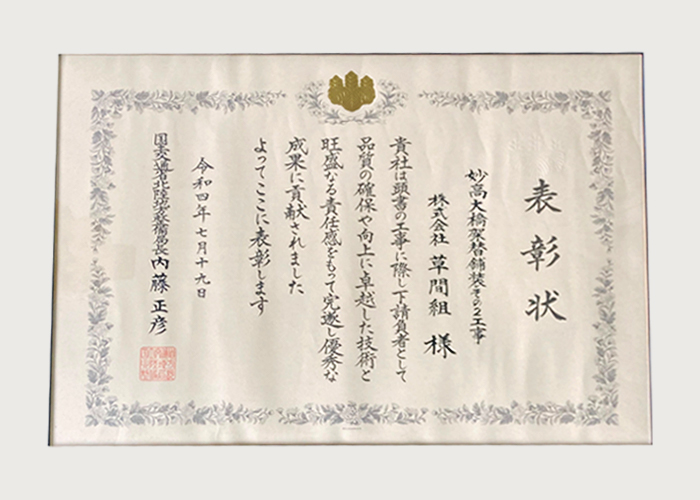 表彰状
妙高大橋架替舗装その2工事
株式会社 草間組 様
貴社は頭書の工事に際し下請負者として
品質の確保や向上に卓越した技術と
旺盛なる責任感をもって完遂し優秀な
成果に貢献されました
よってここに表彰します
令和四年七月十九日
国土交通省北陸地方整備局長 内藤正彦